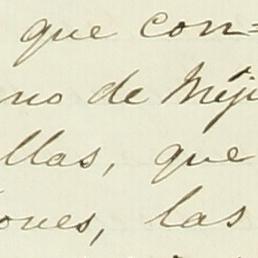 que con=
no de Méji
llas, que
ones, las